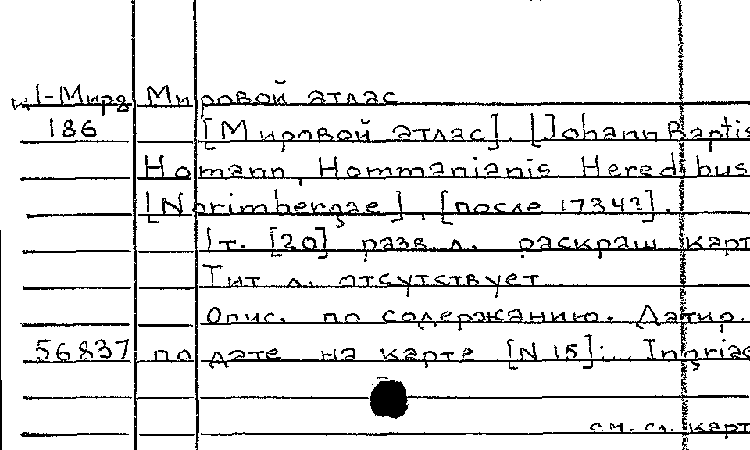 И1-Мира Мировой атлас
186 [Мировой атлас]. [Johann Baptis
Homann, Hommanianis Heredibus
[Norimbergae], [после 1734?].
1т. [20] разв. л. раскраш карт
Тит л. отсутствует
Опис. по содержанию. Датир.
56837 по дате на карте [N 15]: Ingriae
см. сл. карт